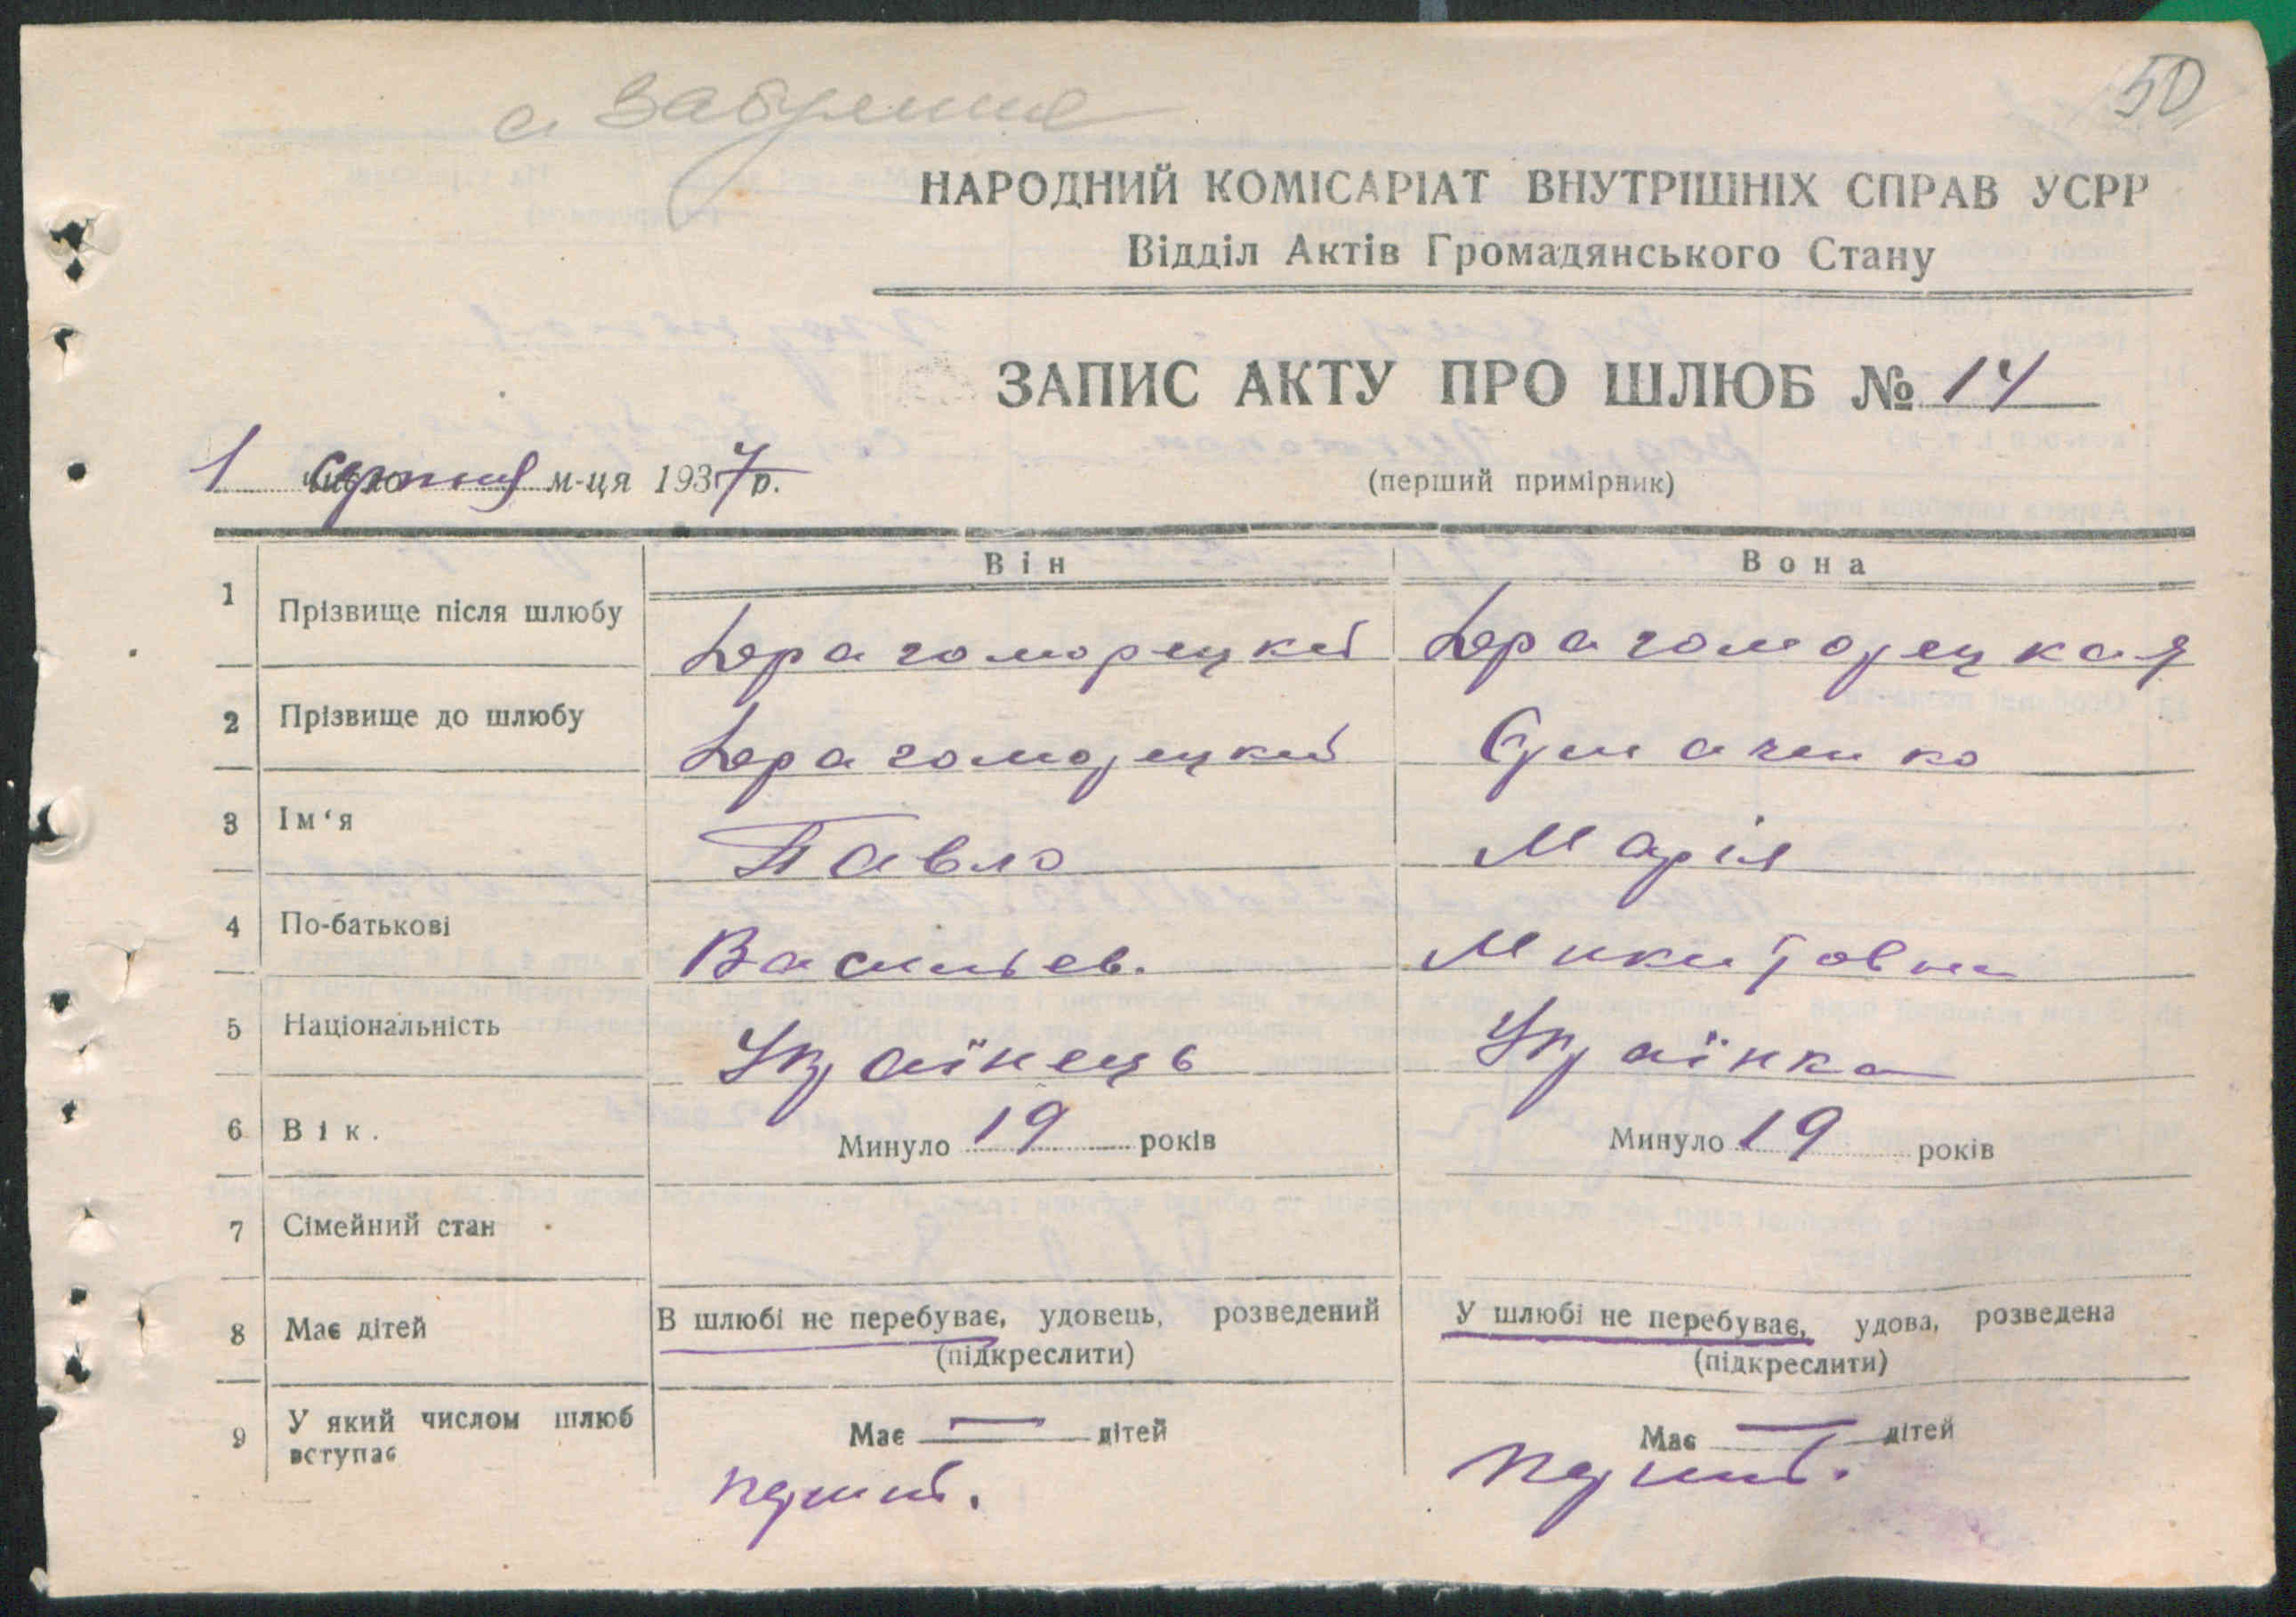 с Забуяння
50
НАРОДНИЙ КОМІСАРІАТ ВНУТРІШНІХ СПРАВ УСРР
Відділ Актів Громадянського Стану
ЗАПИС АКТУ ПРО ШЛЮБ № 14
1 серпня м-ця 1937 р.
(перший примірник)
Він Вона
1 Прізвище після шлюбу Драгоморецкий Драгоморецкая
2 Прізвище до шлюбу Драгоморецкий
3 Ім‘я Павло Марія
4 По-батькові Васильев. Микитовна
5 Національність Українець Українка
6 Вік. Минуло 19 років Минуло 19 років
7 Сімейний стан
8 Має дітей В шлюбі не перебуває, удовець, розведений У шлюбі не перебуває, удова, розведена
(підкреслити) (підкреслити)
9 У який числом шлюб вступає Має — дітей Має — дітей
перший. перший.